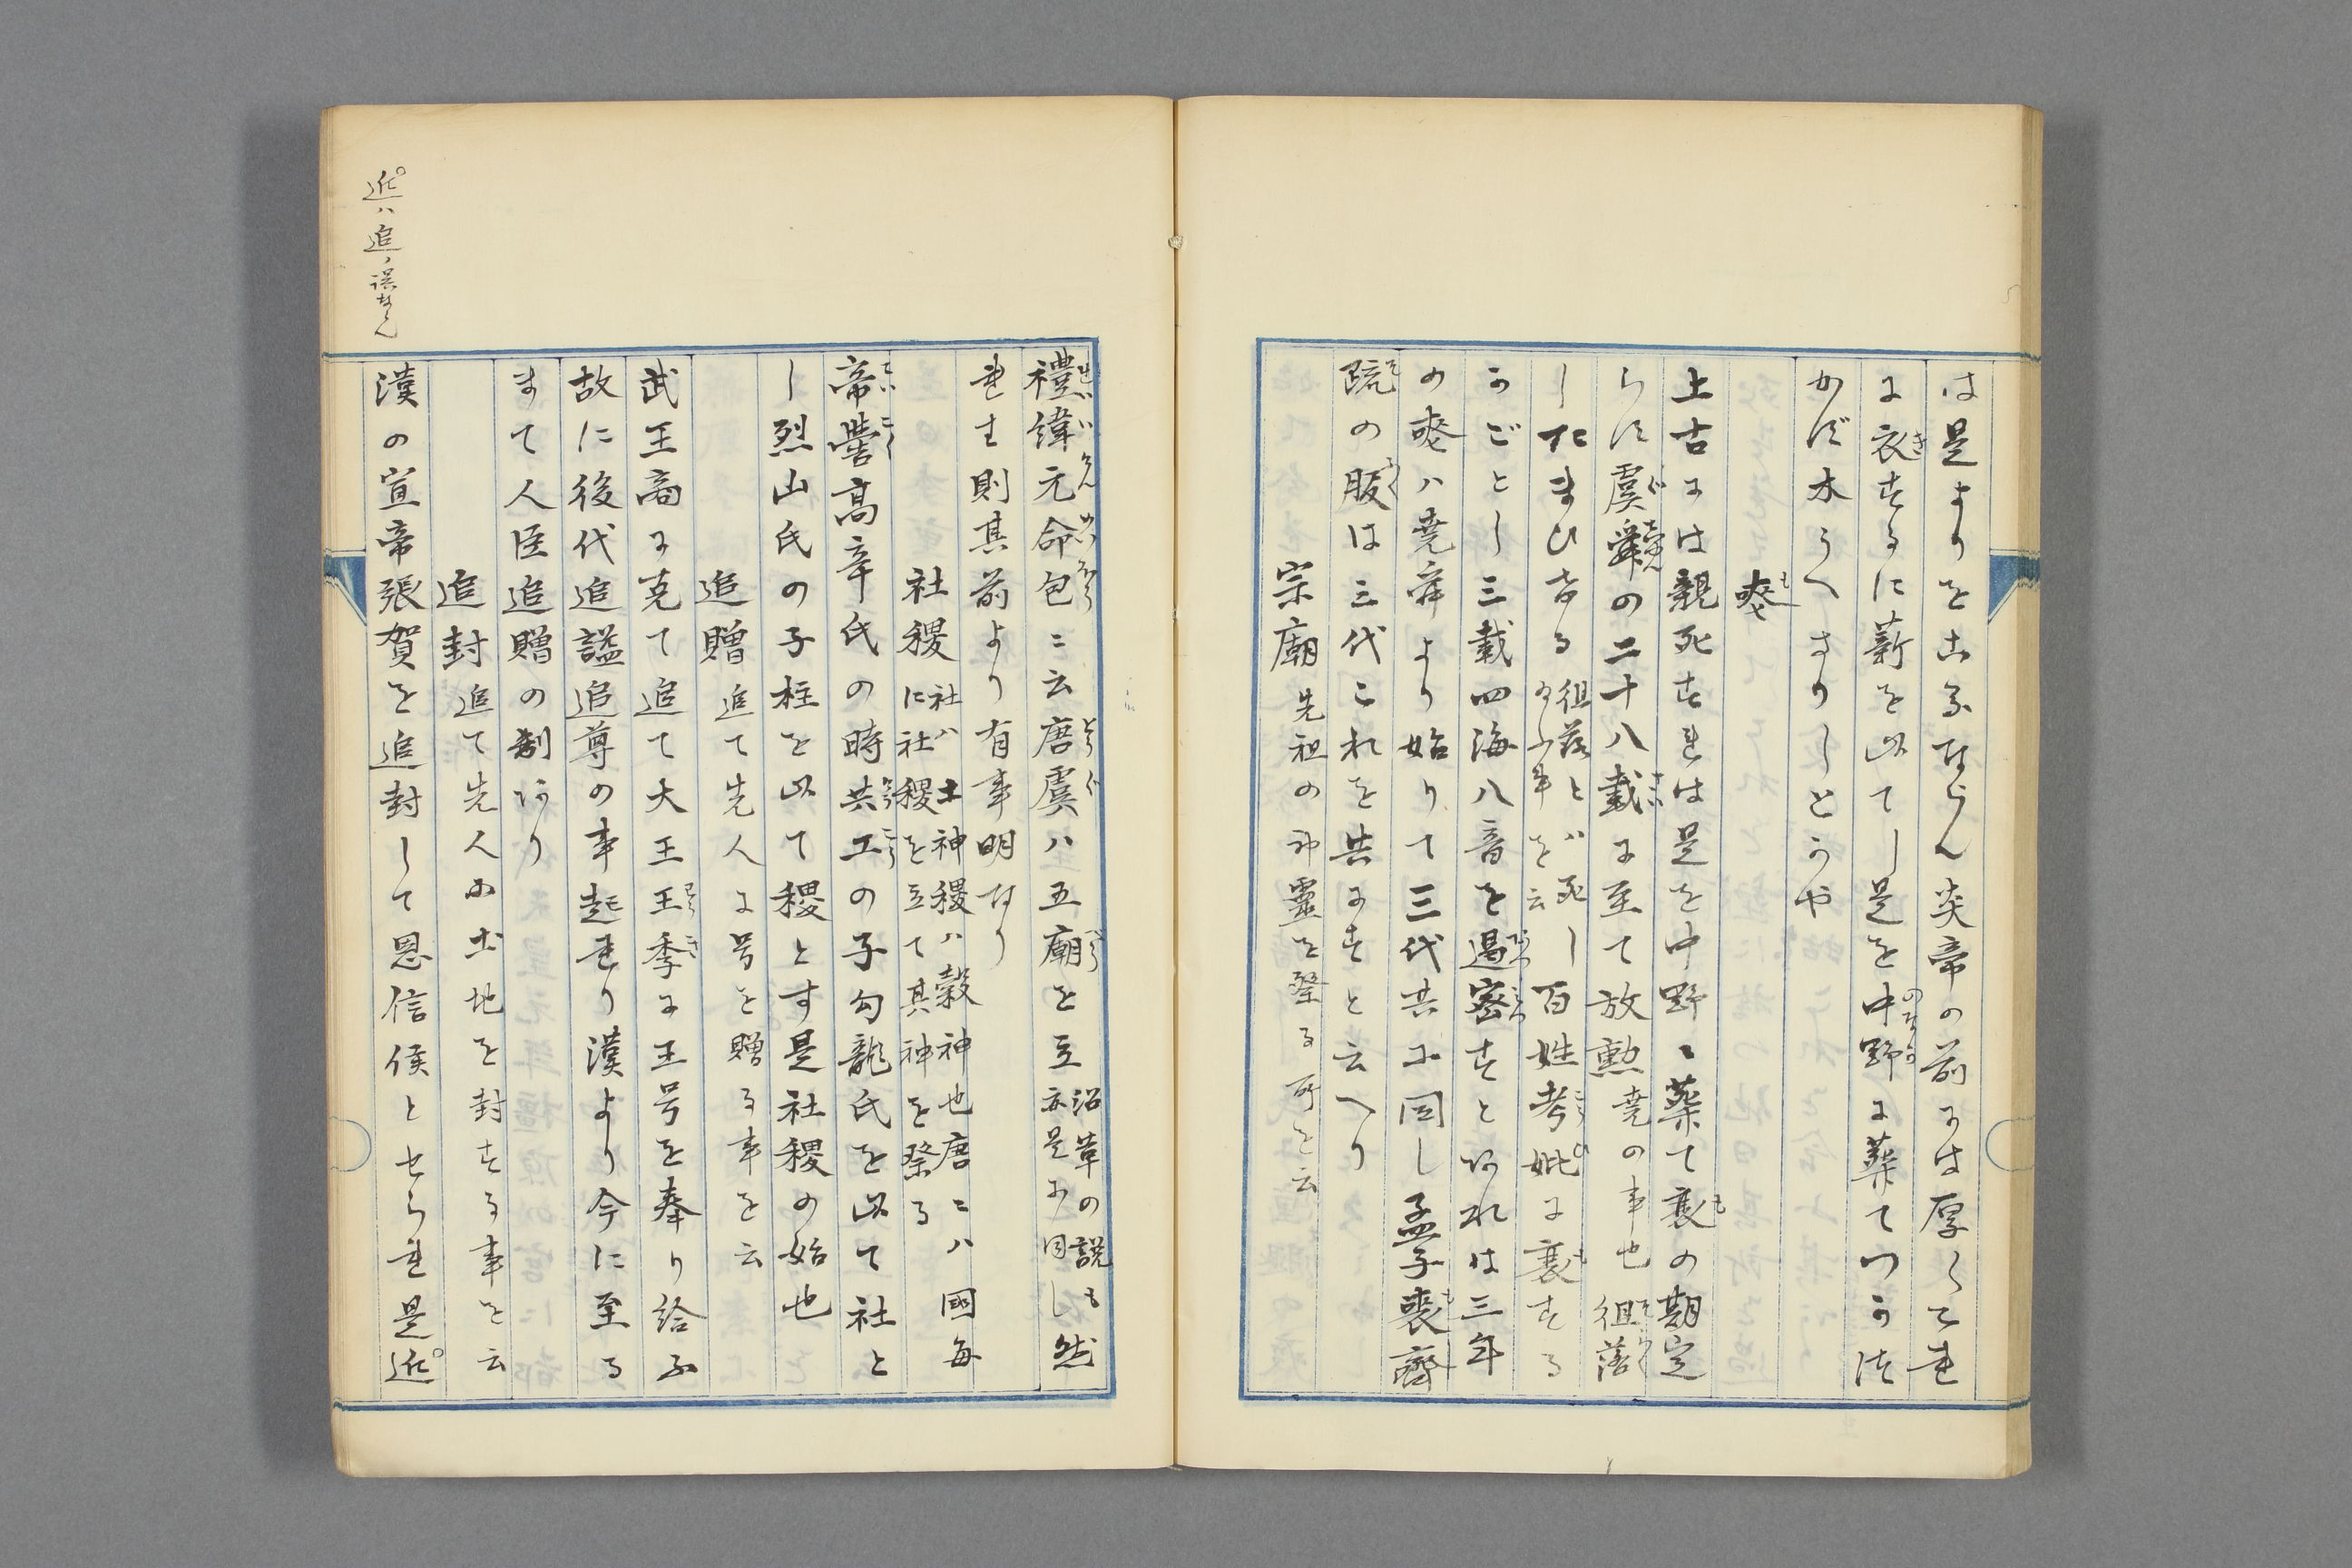 は是よりをこるならん炎帝の前には厚くこれ
に衣するに薪を以てし是を中野に葬てつかつ
かず木うへさりしとかや
喪
上古には親死すれは是を中野に葬て喪の期定
らず虞舜の二十八載に至て放勲堯の事也徂落
したまひける徂落とハ死し
給ふ事を云百姓考妣に喪する
かごとし三載四海八音を遏密すとあれは三年
の喪ハ堯舜より始りて三代共に同し孟子喪齊
疏の服は三代これを共にすと云へり
宗廟先祖の神靈を祭る所を云
禮緯元命包ニ云唐虞ハ五廟を立沿革の説も
亦是に同し然
れは則其前より有事明なり
社稷社ハ土神稷ハ穀神也唐ニハ國毎
に社稷を立て其神を祭る
帝嚳高辛氏の時共工の子勾龍氏を以て社と
し烈山氏の子柱を以て稷とす是社稷の始也
追贈追て先人に号を贈る事を云
武王商に克て追て大王王季に王号を奉り給ふ
故に後代追謚追尊の事起れり漢より今に至る
まて人臣追贈の制あり
追封追て先人に土地を封する事を云
漢の宣帝張賀を追封して恩信侯とせらる是近
近ハ追ノ誤ならん